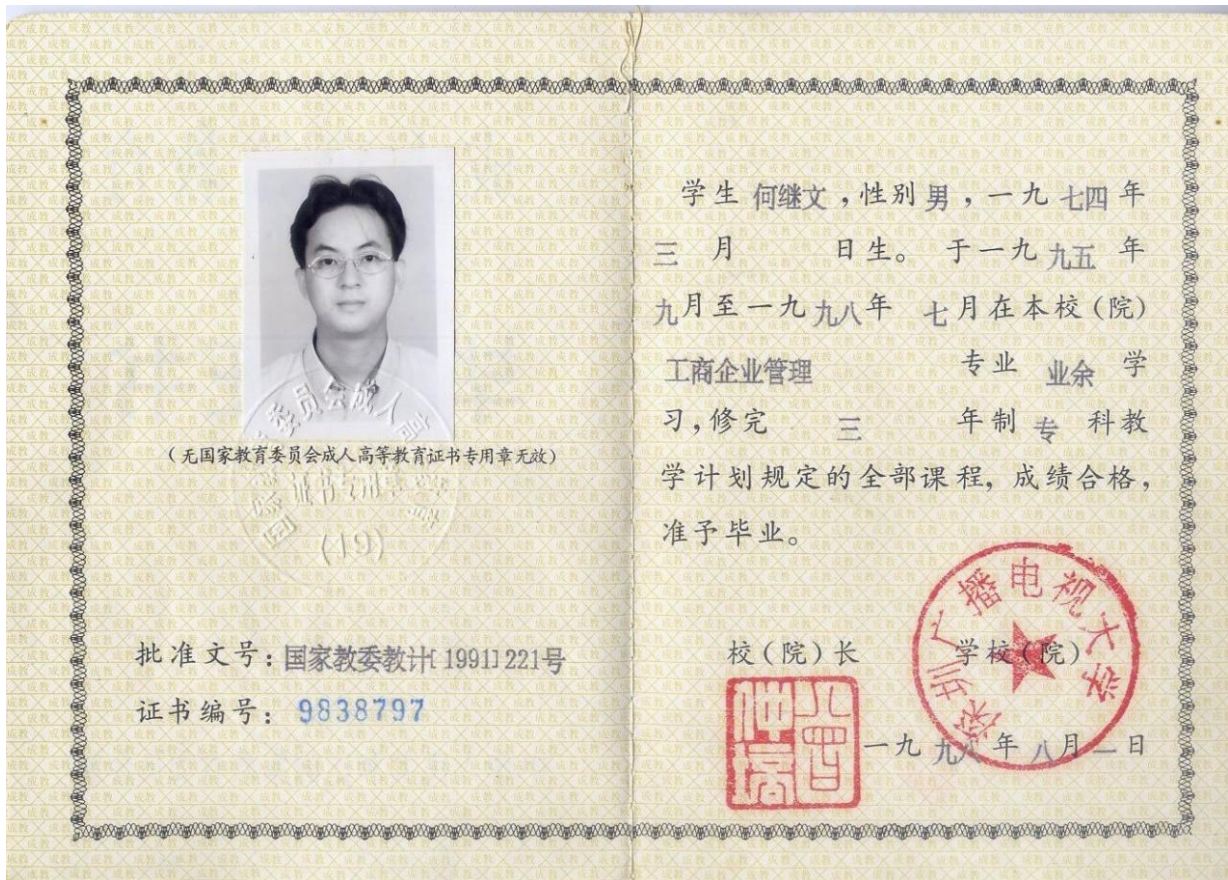 (无国家教育委员会成人高等教育证书专用章无效)
(19)
批准文号:国家教委教计[1991]221号
证书编号:9838797
学生 何继文,性别 男,一九 七四 年
三 月 日生。于一九 九五 年
九月至一九 九八年 七月在本校(院)
工商企业管理 专业 业余 学
习,修完 三 年制 专 科教
学计划规定的全部课程,成绩合格,
准予毕业。
校(院)长 学校(院)
深圳广播电视大学
一九 九八 年 八月 一日